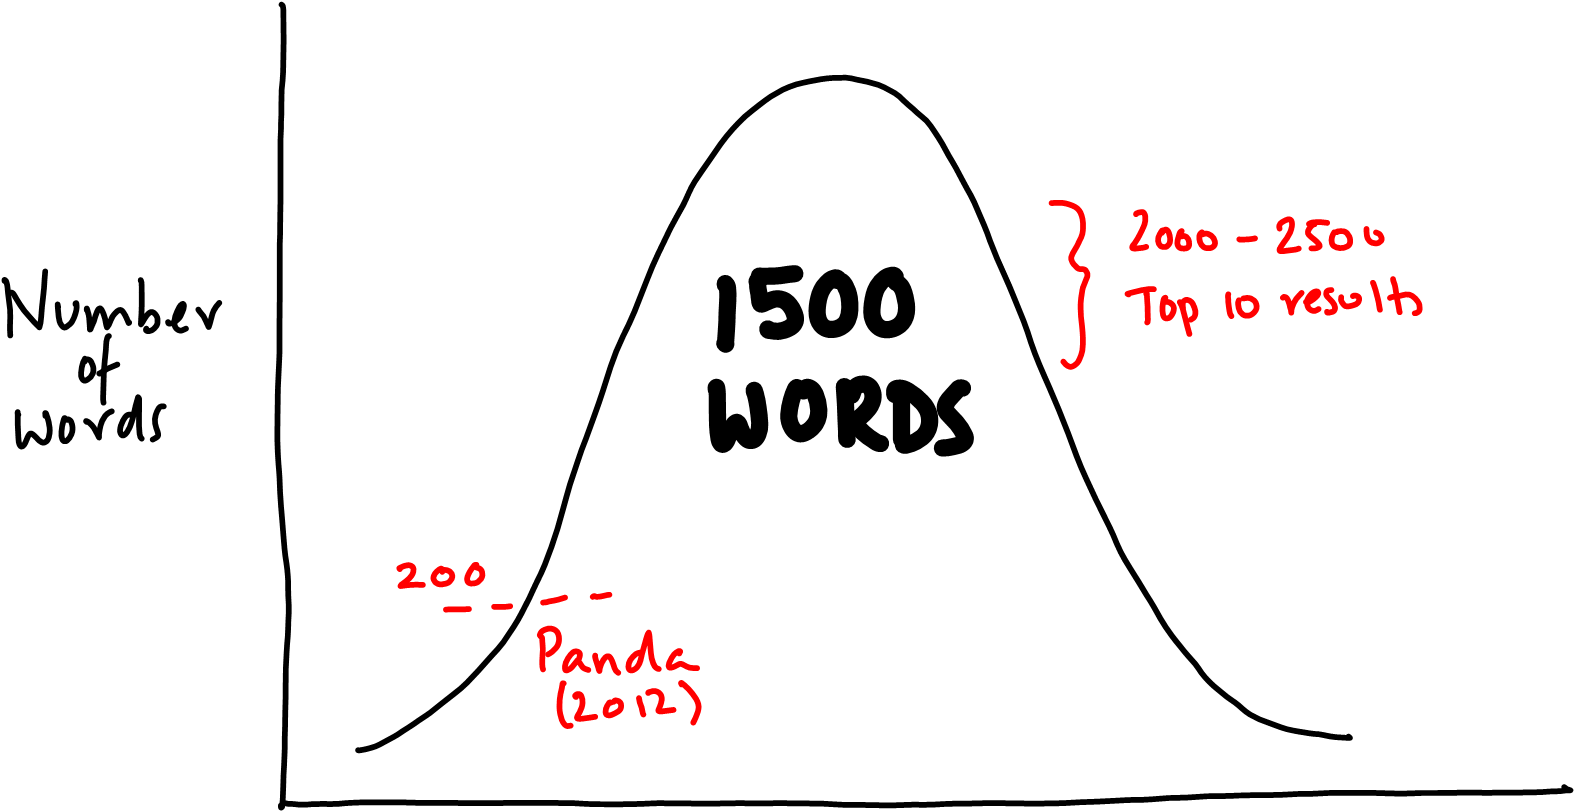 Number
of
words
1500
WORDS
2000 - 2500
Top 10 results
200
Panda
(2012)